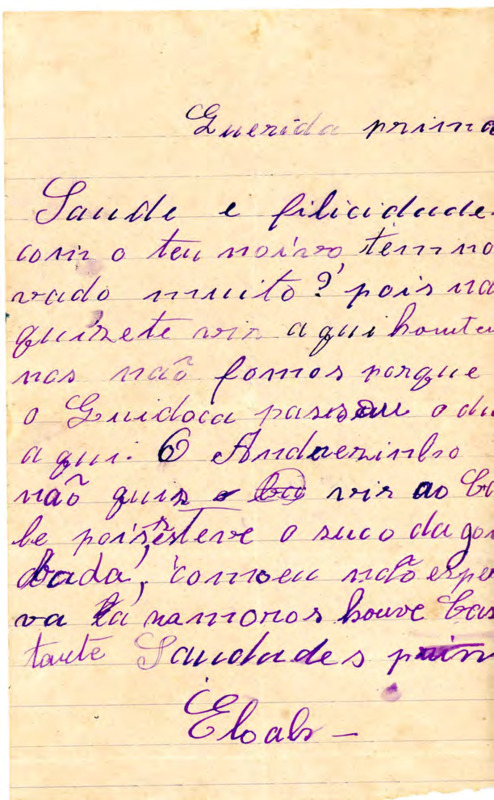 Querida prima
Saude e filicidade
com o teu noivo têm no
vado muito? pois na
quizete vir aqui hontem
nos não fomos porque
o Guidoca passou o dia
aqui. O Andrezinho
não quiz vir ao ba
le pois esteve o suco da goi
bada, como eu não espe
va lá namoros houve bas
tante Saudades prim
Eloah -